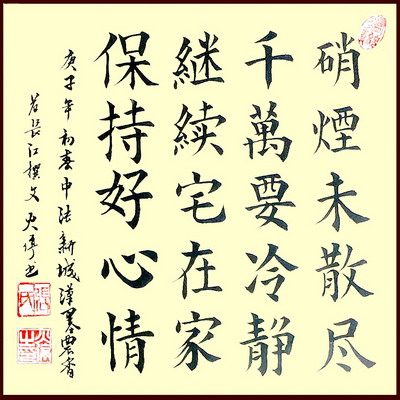 硝煙未散尽
千萬要冷靜
继续宅在家
保持好心情
庚子年初春中法新城漢墨農香
長江撰文